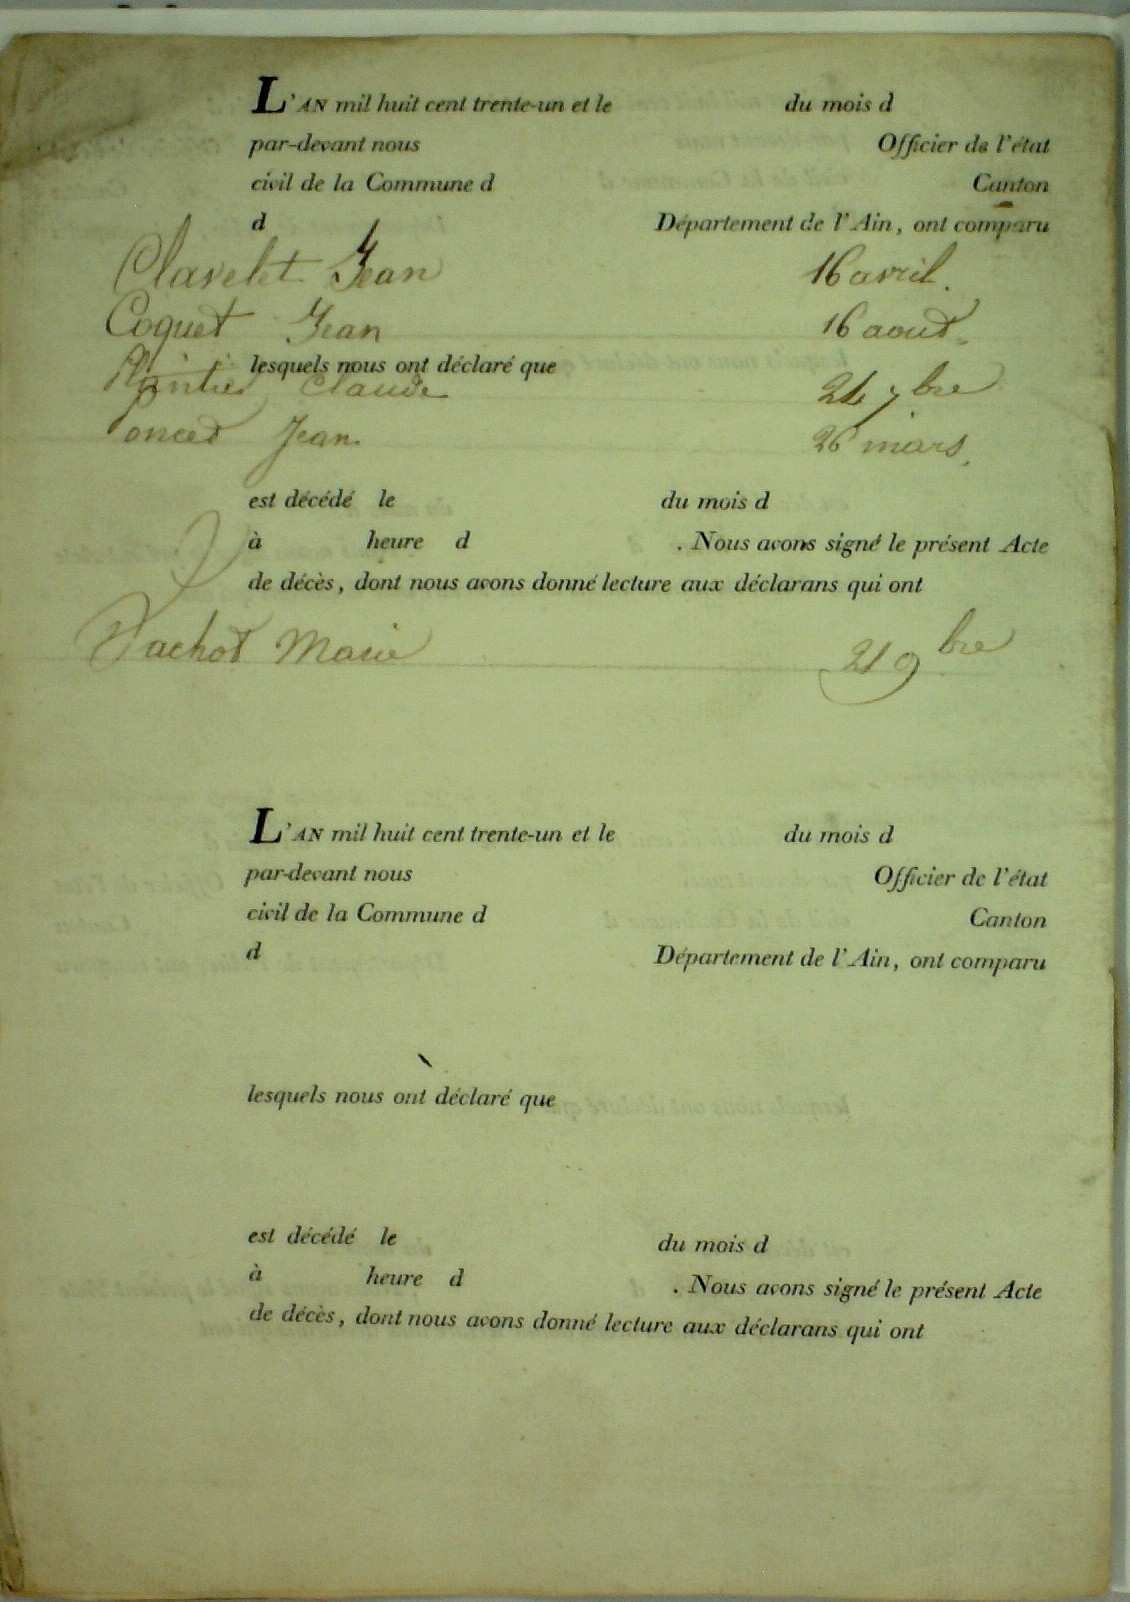 L'AN mil huit cent trente-un et le du mois d
par-devant nous Officier de l'état
civil de la Commune d Canton
d Département de l'Ain, ont comparu
Clavelet Jean 16 avril.
Coquet Jean 16 aout.
lesquels nous ont déclaré que
Claude 24 7bre
Poncet Jean 26 mars.
est décédé le du mois d
à heure d . Nous avons signé le présent Acte
de décès, dont nous avons donné lecture aux déclarans qui ont
Vachot Marie 21 9bre
L'AN mil huit cent trente-un et le du mois d
par-devant nous Officier de l'état
civil de la Commune d Canton
d Département de l'Ain, ont comparu
lesquels nous ont déclaré que
est décédé le du mois d
à heure d . Nous avons signé le présent Acte
de décès, dont nous avons donné lecture aux déclarans qui ont